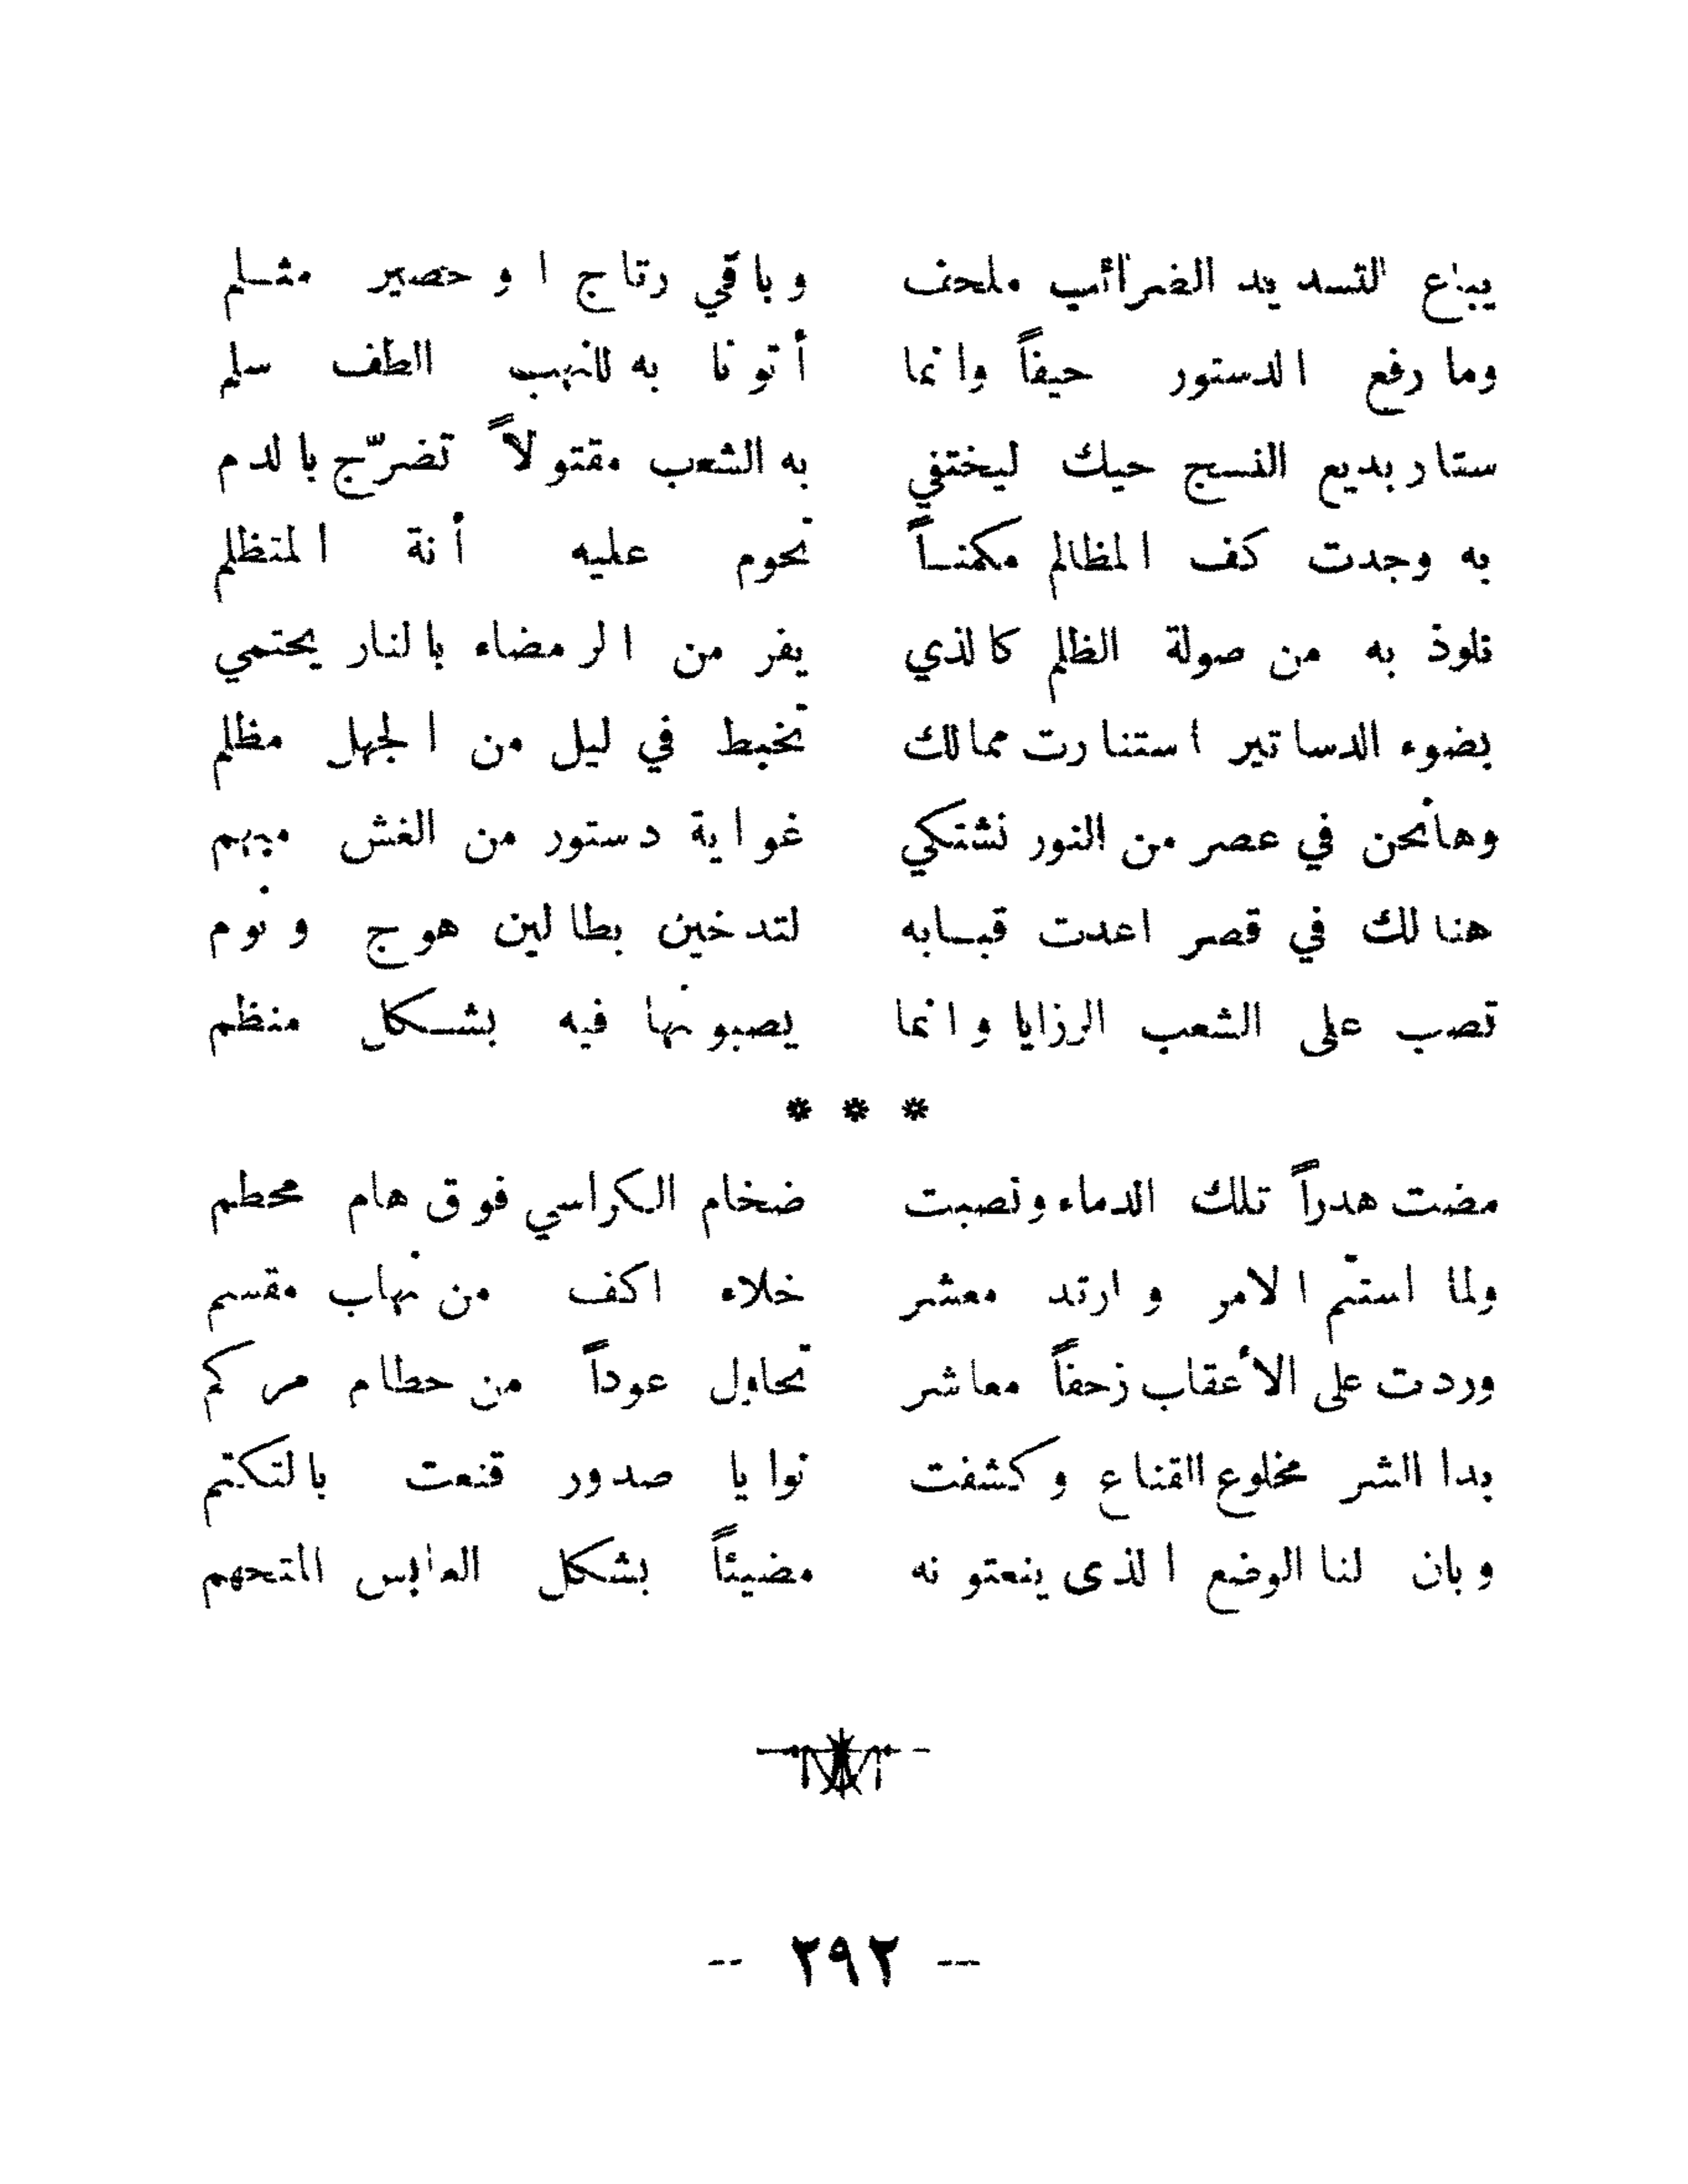 يباع لتسديد الضرائب ملحف وباقي رتاج او حصير مثلم
وما رفع الدستور حيفاً وانما أتونا به للنهب الطف سلم
ستار بديع النسج حيك ليختفي به الشعب مقتولاً تضرّج بالدم
به وجدت كف المظالم مكمنـاً تحوم عليه أنة المتظلم
نلوذ به من صولة الظلم كالذي يفر من الرمضاء بالنار يحتمي
بضوء الدساتير استنارت ممالك تخبط في ليل من الجهل مظلم
وها نحن في عصر من النور نشتكي غواية دستور من الغش مبهم
هنالك في قصر اعدت قبـابه لتدخين بطالين هوج ونوم
تصب على الشعب الرزايا وانما يصبونها فيه بشـكل منظم
* * *
مضت هدراً تلك الدماء ونصبت ضخام الكراسي فوق هام محطم
ولما استتم الامر وارتد معشر خلاء اكف من نهاب مقسم
وردت على الأعقاب زحفاً معاشر تحاول عوداً من حطام مركم
بدا الشر مخلوع القناع وكشفت نوايا صدور قنعت بالتكتم
وبان لنا الوضع الذى ينعتونه مضيئاً بشكل العابس المتجهم
-- ٢٩٢ --